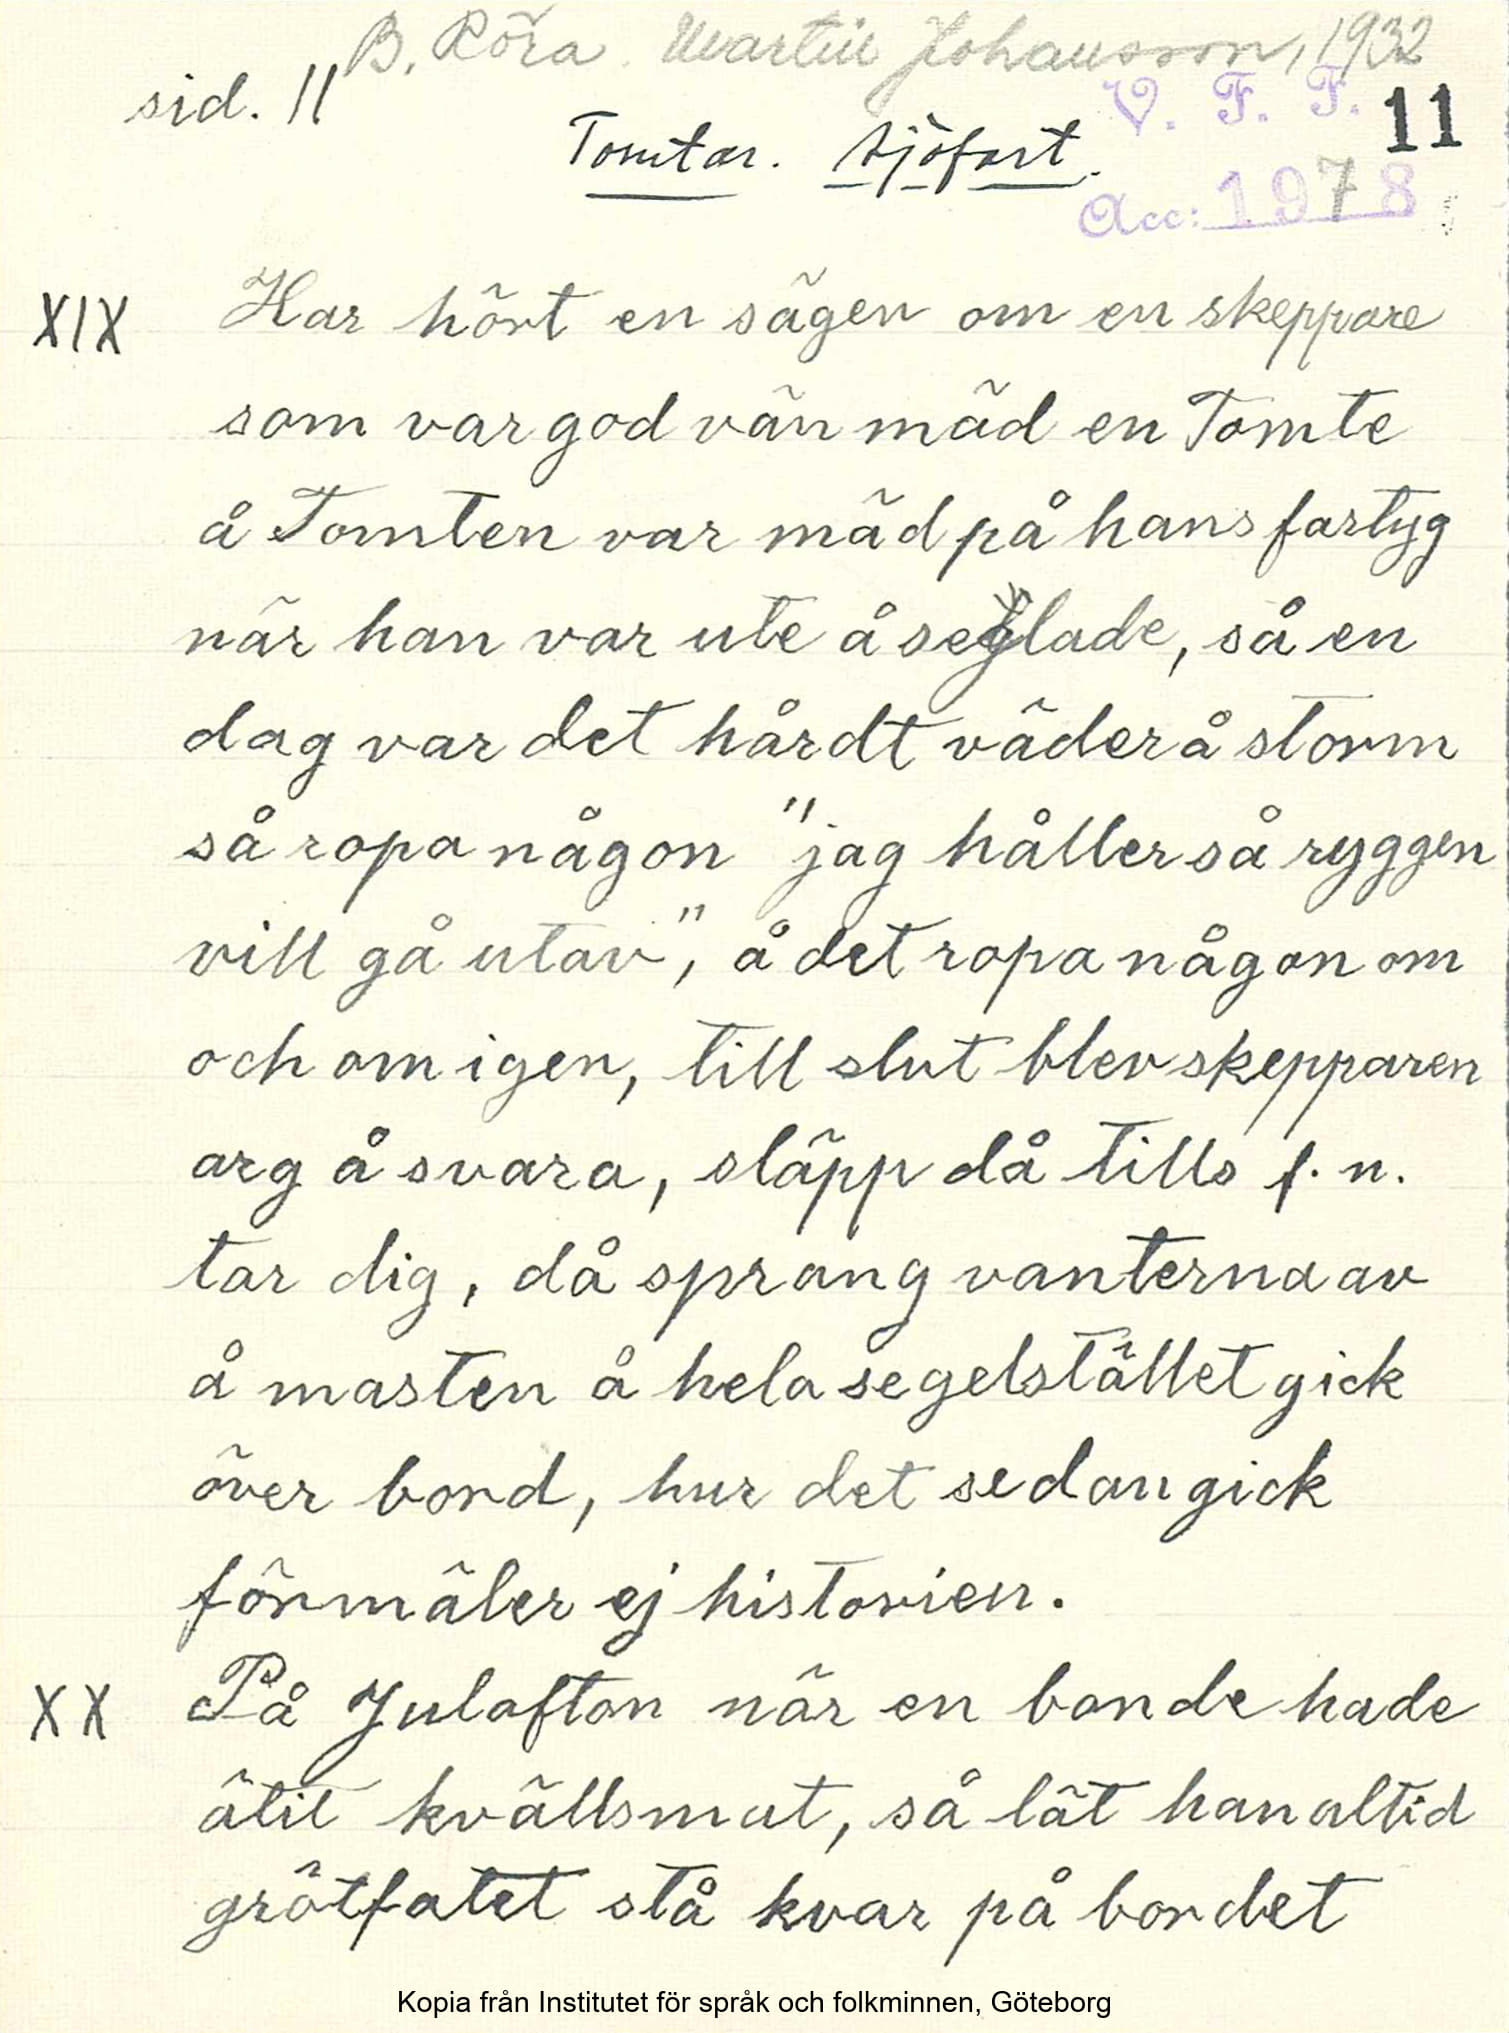 B. Röra. Martin Johansson, 1932
sid. 11
V. F. F. 11
Tomtar. Sjöfart.
Acc: 1978
XIX Har hört en sägen om en skeppare
som var god vän mäd en Tomte
å Tomten var mäd på hans fartyg
när han var ute å seglade, så en
dag var det hårdt väder å storm
så ropa någon "jag håller så ryggen
vill gå utav", å det ropa någon om
och om igen, till slut blev skepparen
arg å svara, släpp då tills f. n.
tar dig, då sprang vanterna av
å masten å hela segelstället gick
över bord, hur det sedan gick
förmäler ej historien.
XX På Julafton när en bonde hade
ätit kvällsmat, så lät han altid
grötfatet stå kvar på bordet
Kopia från Institutet för språk och folkminnen, Göteborg